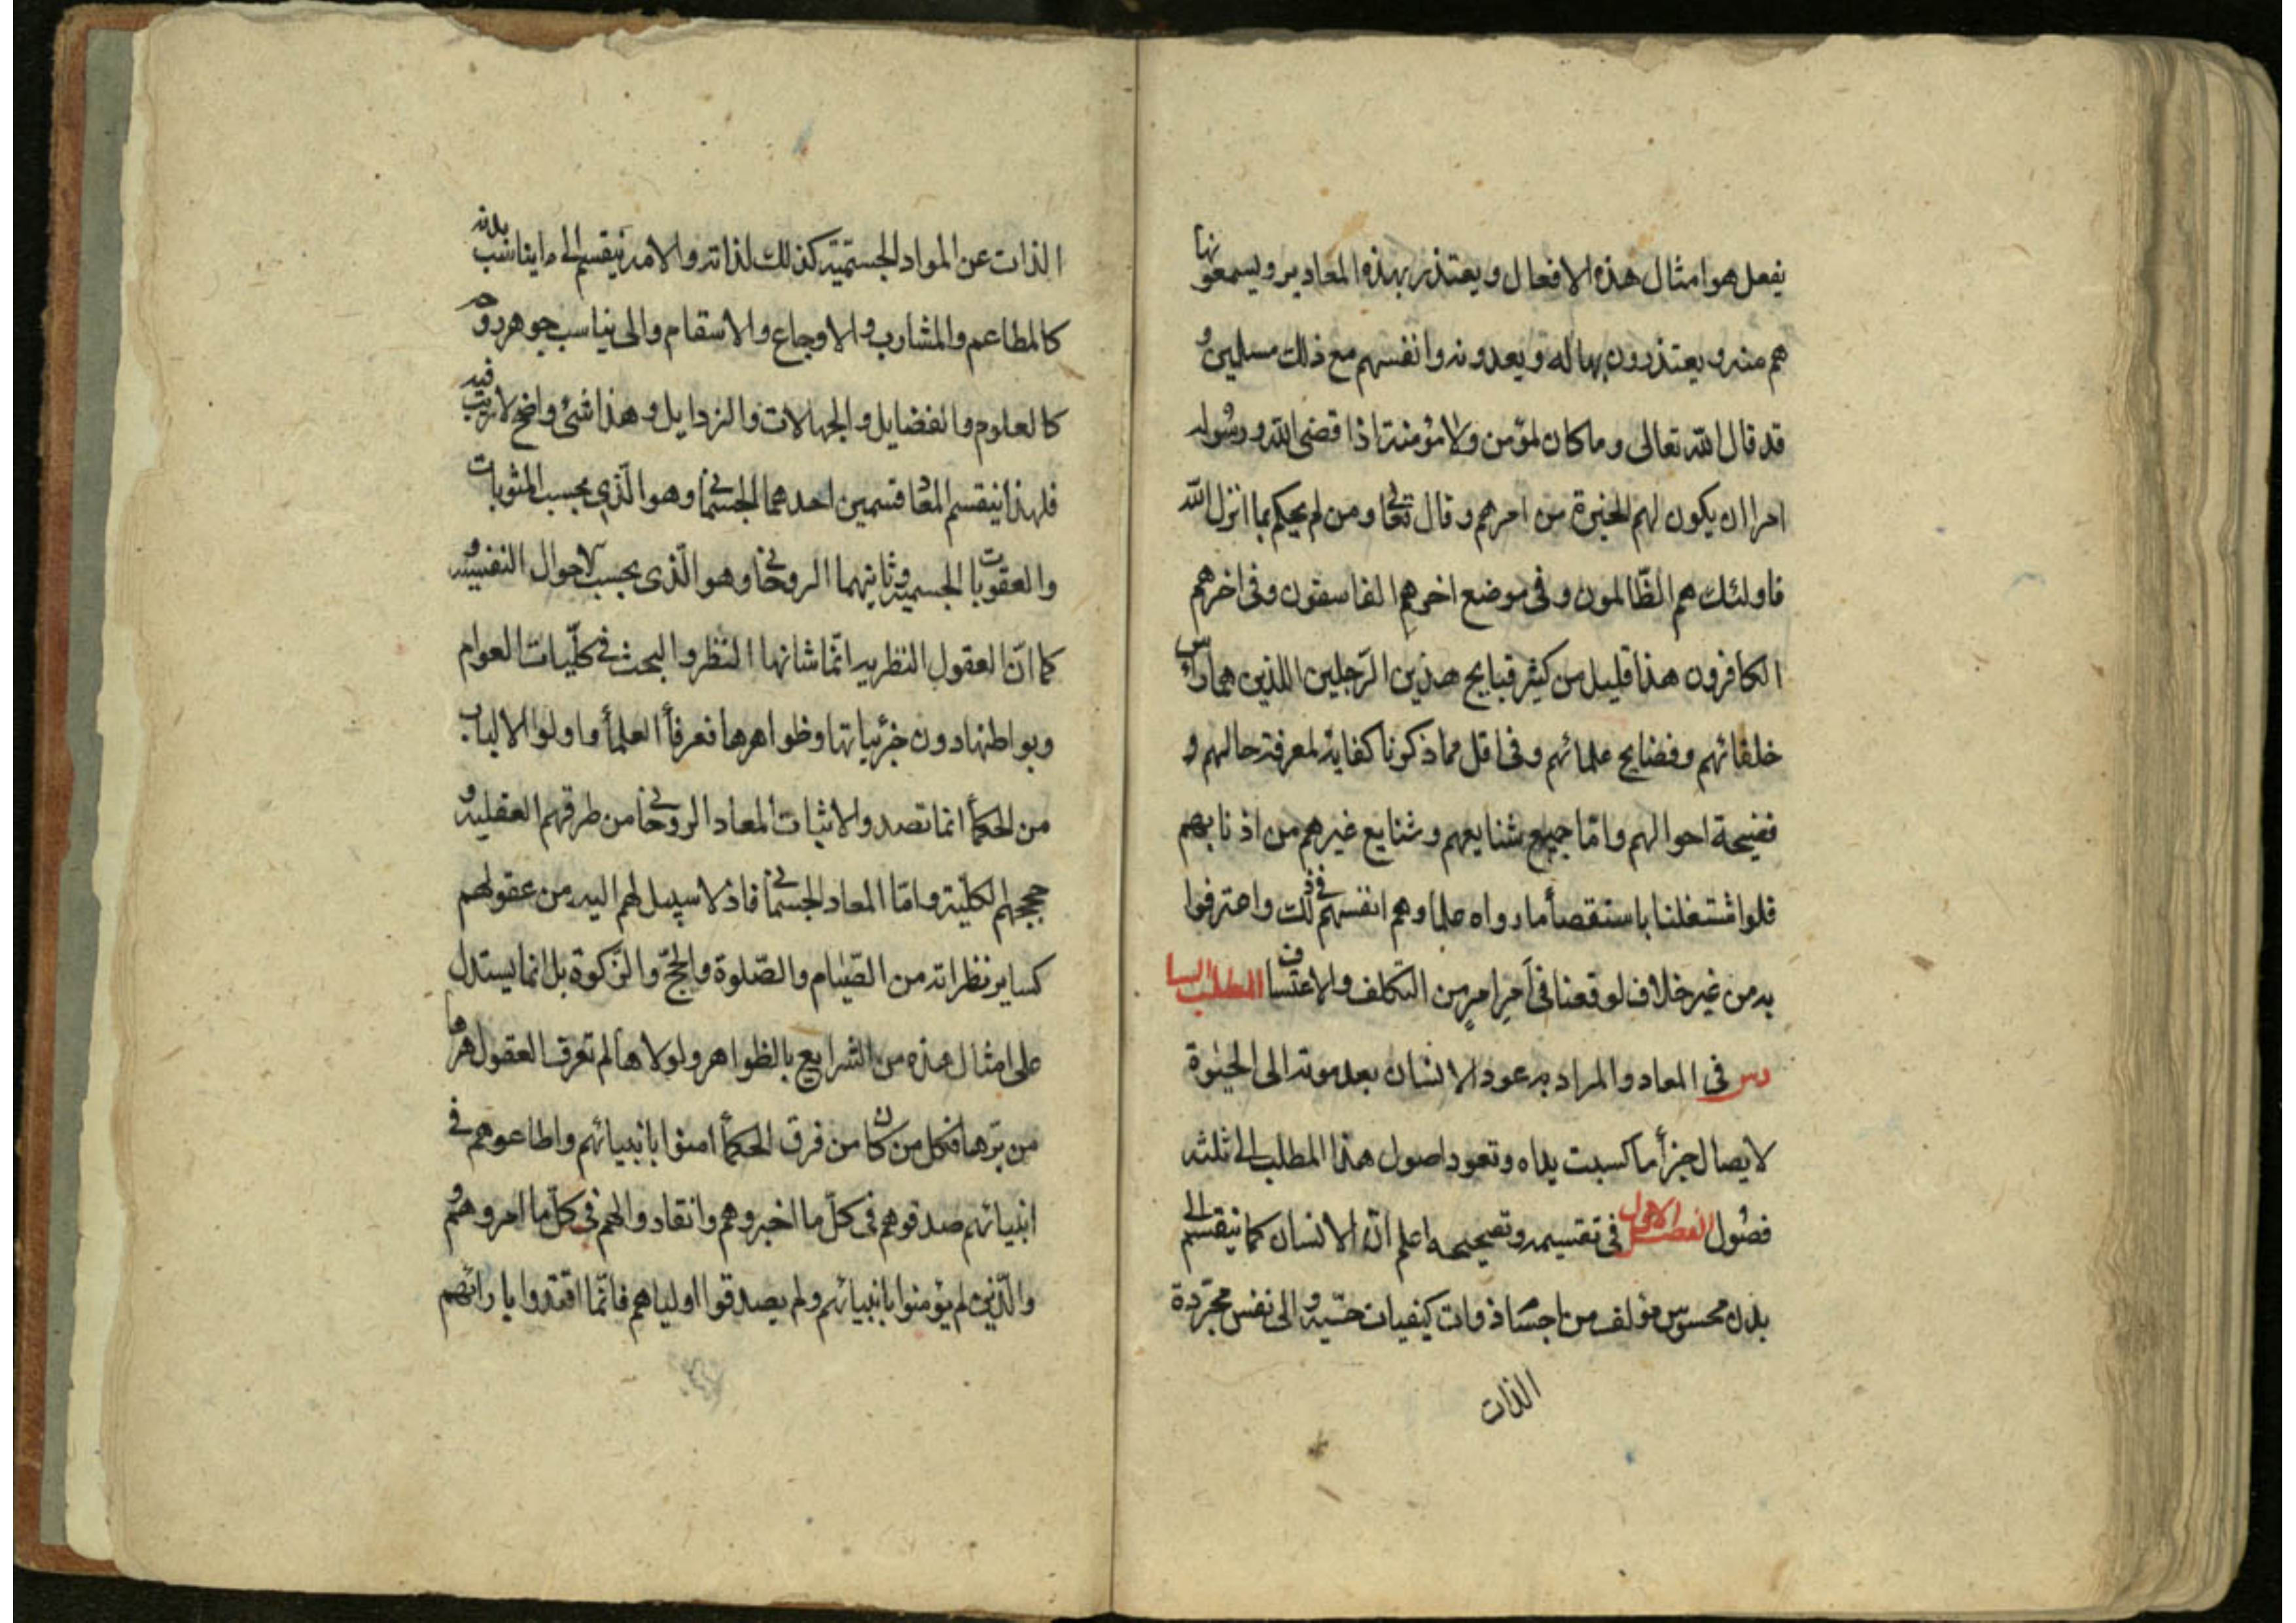 يفعل هو امثال هذه الافعال ويعتذر بهذه المعاذير ويسمعونها
هم منه ويعتذرون بها له ويعدونه وانفسهم مع ذلك مسلمين و
قد قال الله تعالى وما كان لمؤمن ولا مؤمنة اذا قضى الله ورسوله
امرا ان يكون لهم الخيرة من امرهم وقال تعالى ومن لم يحكم بما انزل الله
فاولئك هم الظالمون وفى موضع اخرهم الفاسقون وفى اخرهم
الكافرون هذا قليل من كثير قبايح هذين الرجلين اللذين هما راس
خلفائهم وفضايح علمائهم وفى اقل مما ذكرنا كفاية لمعرفة حالهم و
فضيحة احوالهم واما جميع شنايعهم وشنايع غيرهم من اذنابهم
فلو اشتغلنا باستقصأ ما رواه علماوهم انفسهم فى ذلك واعترفوا
به من غير خلاف لوقعنا فى آخر امر من التكلف والاعتساف المطلب السا
دس فى المعاد والمراد به عود الانسان بعد موته الى الحيوة
لايصال جزأ ما كسبت يداه وتعود اصول هذا المطلب الى ثلثه
فصول الفصل الاول فى تقسيمه وتصحيحه اعلم ان الانسان كما ينقسم الى
بدن محسوس مؤلف من اجسام ذوات كيفيات حسّيه والى نفس مجرّدة
الذات
الذات عن المواد الجسميّة كذلك لذاته والامه ينقسم الى ما يناسب بدنه
كالمطاعم والمشارب والاوجاع والاسقام والى يناسب جوهر روحه
كالعلوم والفضايل والجهالات والرذايل وهذا شئ واضح لا ريب فيه
فلهذا ينقسم المعاد قسمين احدهما الجسمانى وهو الّذى بحسب المثوبات
والعقوبات الجسميه وثانيهما الروحانى وهو الّذى بحسب الاحوال النفسيه و
كما انّ العقول النظريه انّما شانها النظر والبحث فى كلّيات العوام
وبواطنها دون جزئياتها وظواهرها فعرفأ العلمأ واولوا الالباب
من الحكمأ انما تصدوا لاثبات المعاد الروحانى من طرقهم العقليه و
حججهم الكلّية وامّا المعاد الجسمانى فاذ لا سبيل لهم اليه من عقولهم
كساير نظراته من الصّيام والصّلوة والحجّ والزّكوة بل انما يستدل
على امثال هذه من الشرايع بالظواهر ولولاها لم تعرف العقول هرها
من برّها فكل من كان من فرق الحكمأ امنوا بانبيائهم واطاعوهم فى
انبيائهم صدقوهم فى كلّ ما اخبروهم وانقادوا لهم فى كلّ ما امروهم و
والّذين لم يؤمنوا بانبيائهم ولم يصدقوا اولياهم فانّما اقتدوا بارائهم